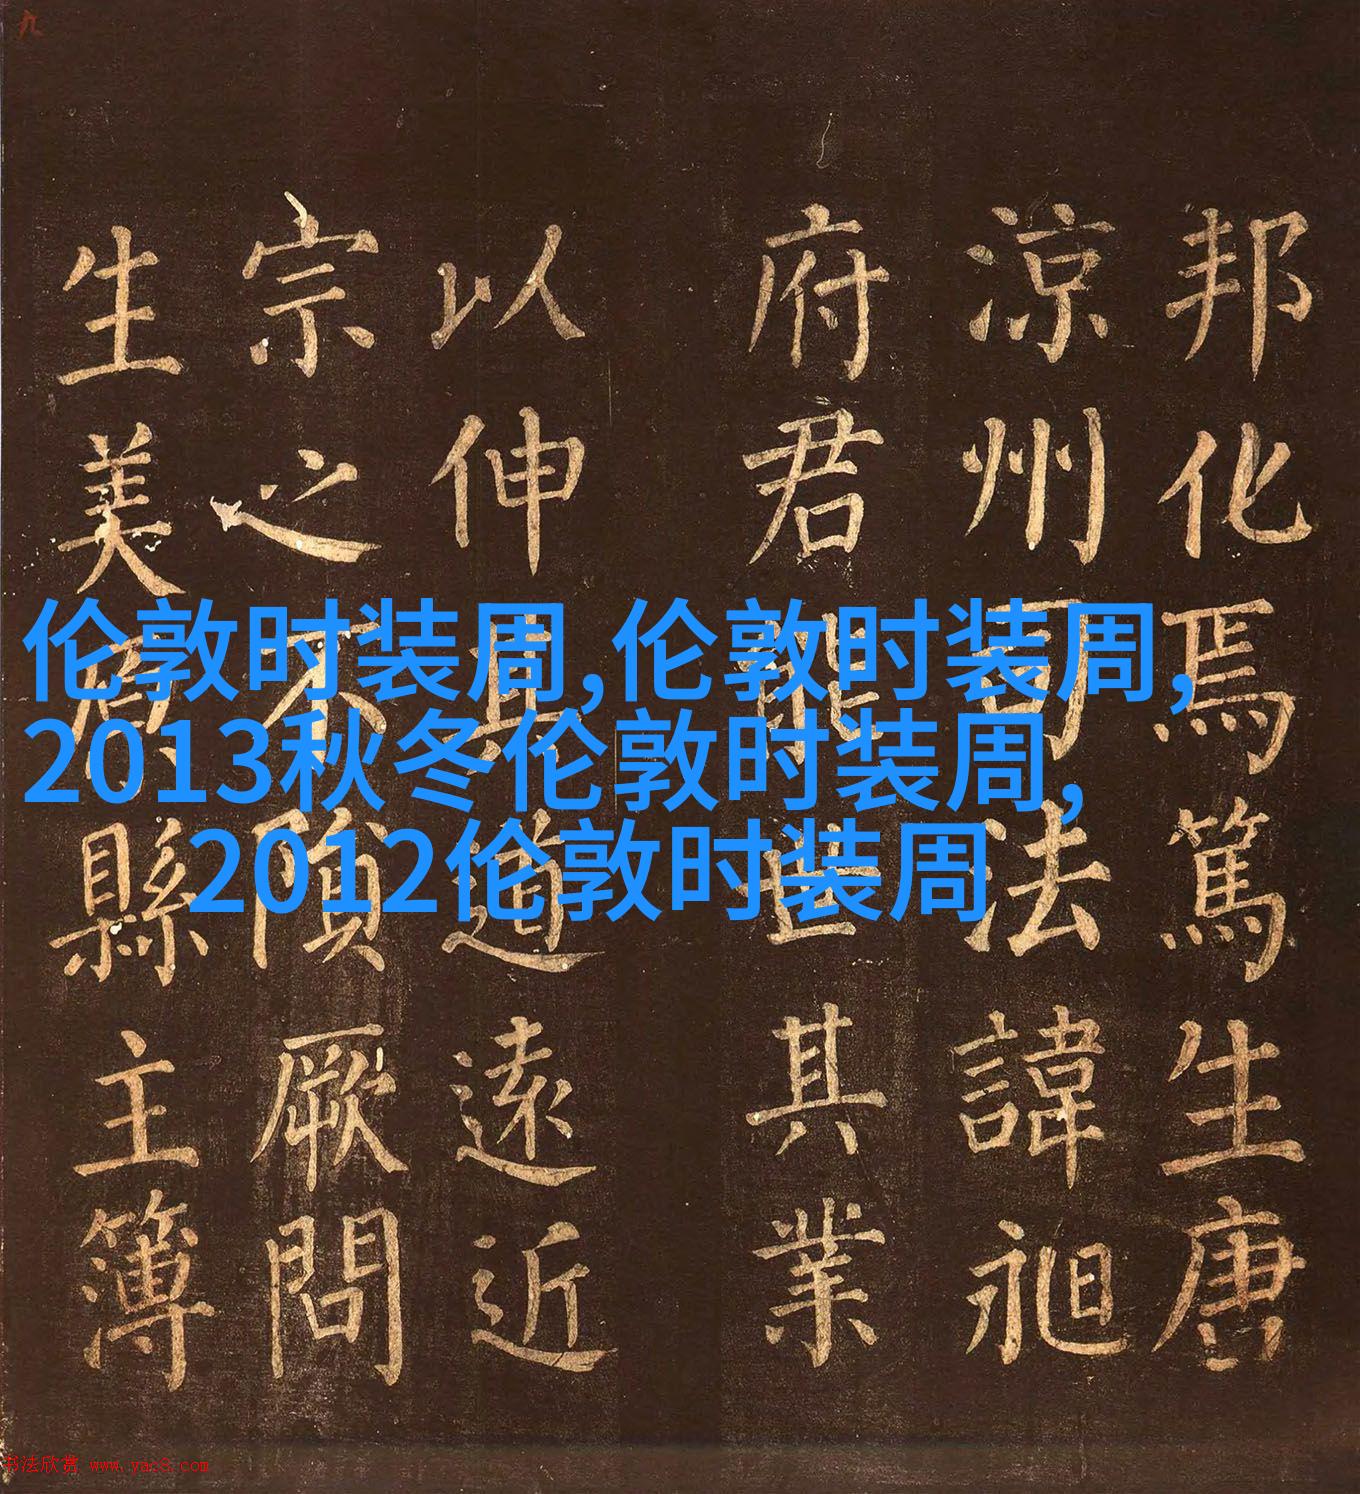 九
邦化焉篤生唐
涼州司法諱昶
府君能世其業
以伸其道遠近
宗之不隕厥問
生美原縣主簿
伦敦时装周,伦敦时装周,
2013秋冬伦敦时装周,
2012伦敦时装周
书法欣赏 www.yac8.com